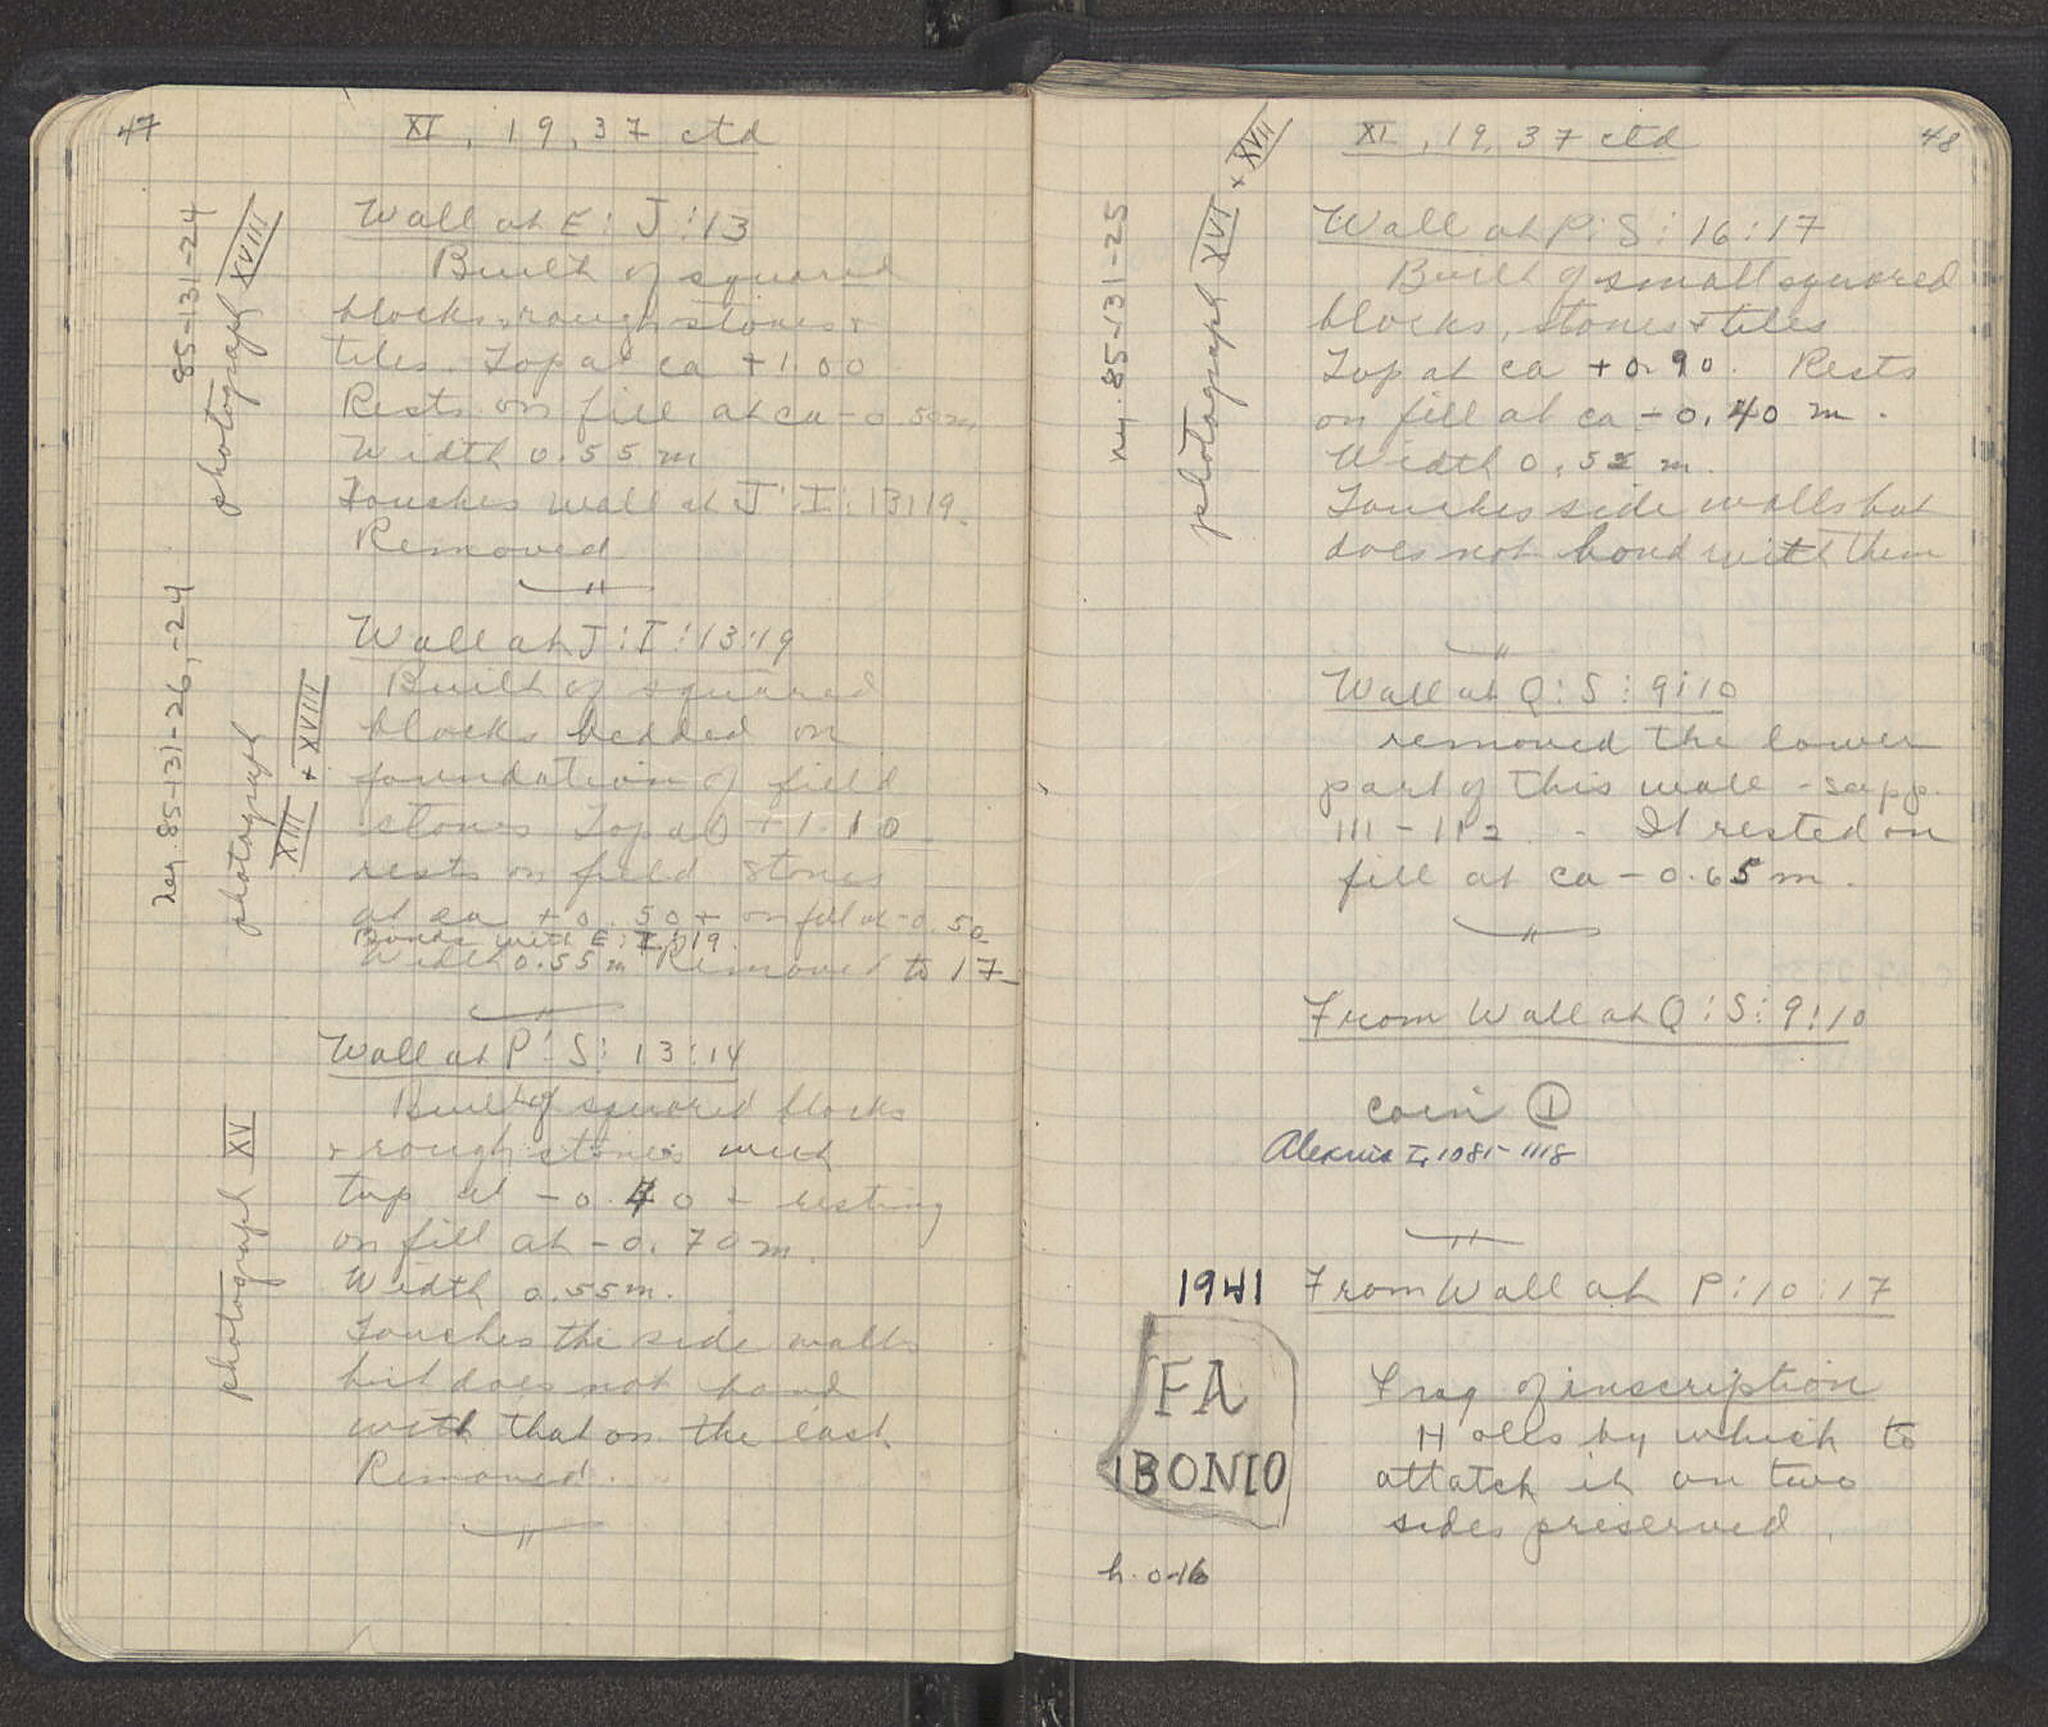 47
XI, 19, 37 ctd
85-131-24
photograph XVIII
Wall at E: J: 13
Built of squared
blocks, rough stones +
tiles. Top at ca +1.00
Rests on fill at ca -0.50m,
Width 0.55 m
Touches wall at J: I: 13:19.
Removed
neg. 85-131-26, -24
photograph
XIII + XVIII
Wall at J: I: 13:19
Built of squared
blocks bedded on
foundation of field
stones Top at +1.10
rests on field stones
at ca +0.50 + on fill at -0.50
Bonds with E: I: 19.
Width 0.55 m Removed to 17
photograph XV
Wall at P: S: 13:14
Built of squared blocks
+ rough stones with
top at -0.40 + resting
on fill at -0.70m.
Width 0.55m.
Touches the side walls
but does not bond
with that on the east
Removed.
48
XI, 19, 37 ctd
neg. 85-131-25
photograph XVI + XVII
Wall at P: S: 16:17
Built of small squared
blocks, stones + tiles
Top at ca +0.90. Rests
on fill at ca -0.40 m.
Width 0.52 m.
Touches side walls but
does not bond with them
Wall at Q: S: 9:10
removed the lower
part of this wall - see pp.
111-112. It rested on
fill at ca -0.65m.
From Wall at Q: S: 9:10
coin ①
Alexius I, 1081-1118
1941
From Wall at P: 10:17
FA
IBONIO
h. 0.16
Frag of inscription
Holes by which to
attatch it on two
sides preserved.